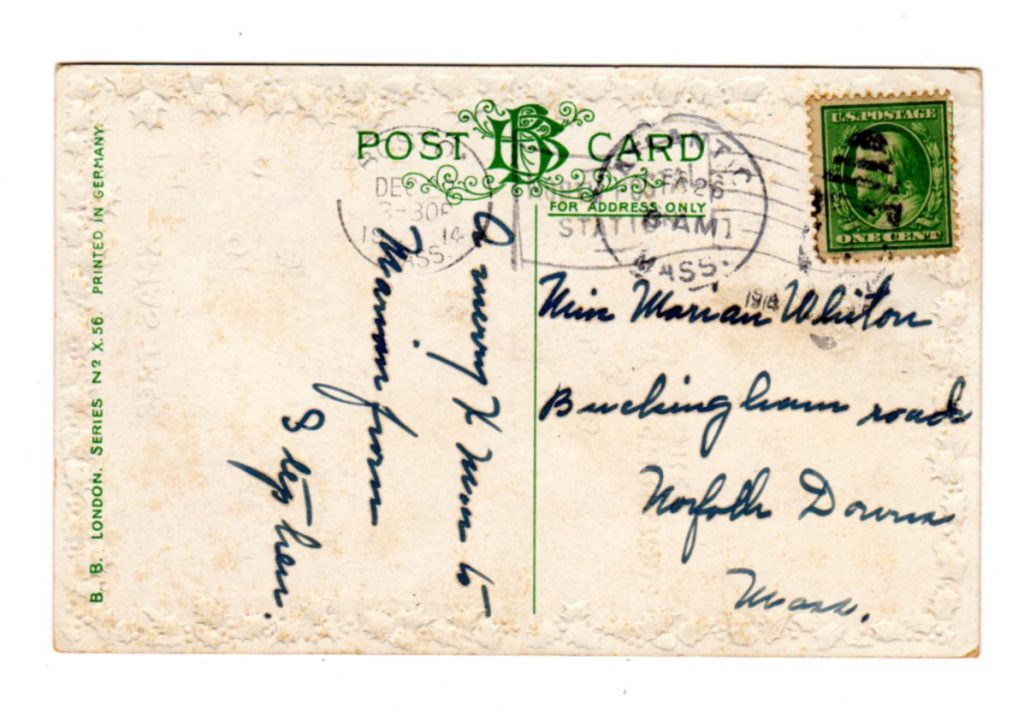 POST CARD
FOR ADDRESS ONLY
U.S. POSTAGE
ONE CENT
DEC
3-30P
14
MASS.
26
6 AM
MASS.
1914
B. B. LONDON. SERIES Nº X.56 PRINTED IN GERMANY.
A merry X Mas to
Marian from
Stephen.
Miss Marian Whiton
Buckingham road
Norfolk Downs
Mass.